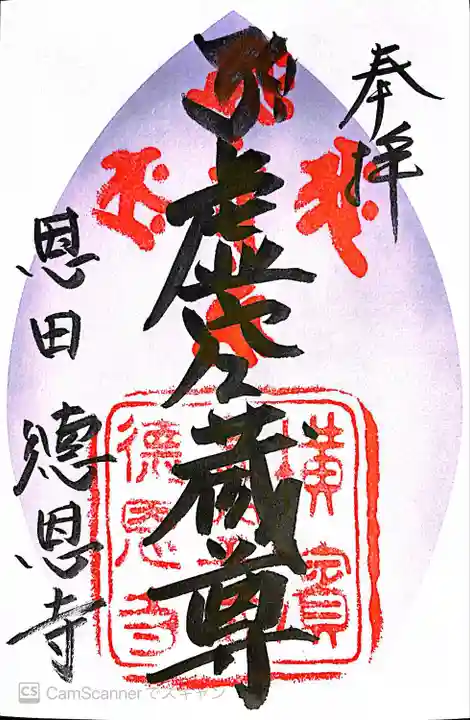 奉拝
虚空蔵尊
恩田 徳恩寺
横濱
徳恩寺
CS CamScanner でスキャン